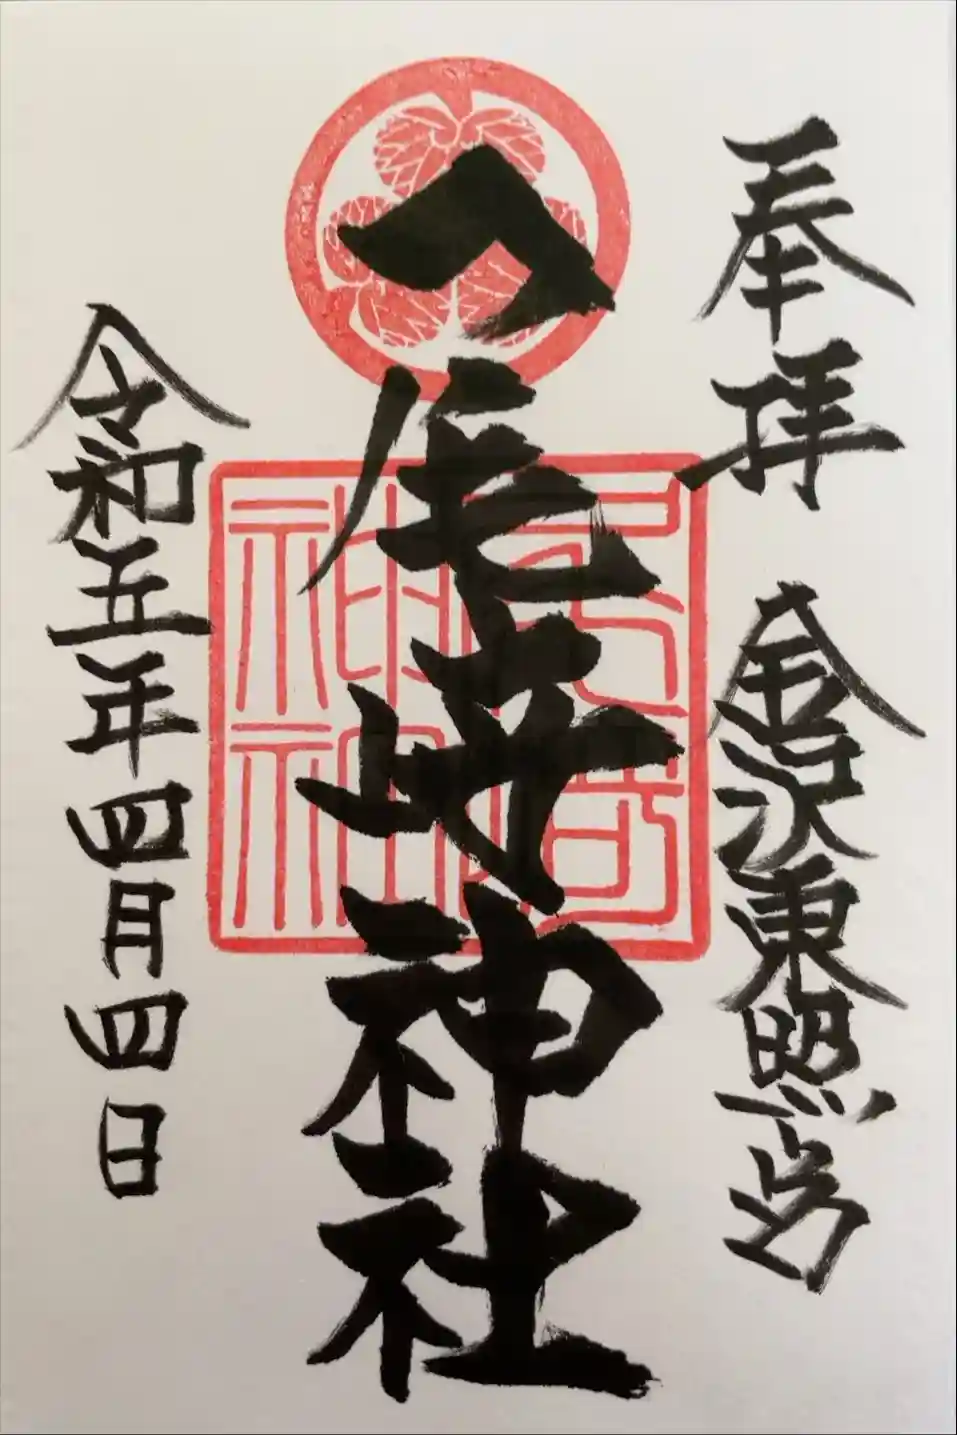 奉拝　金沢東照宮
尾崎神社
令和五年四月四日
尾崎
神社